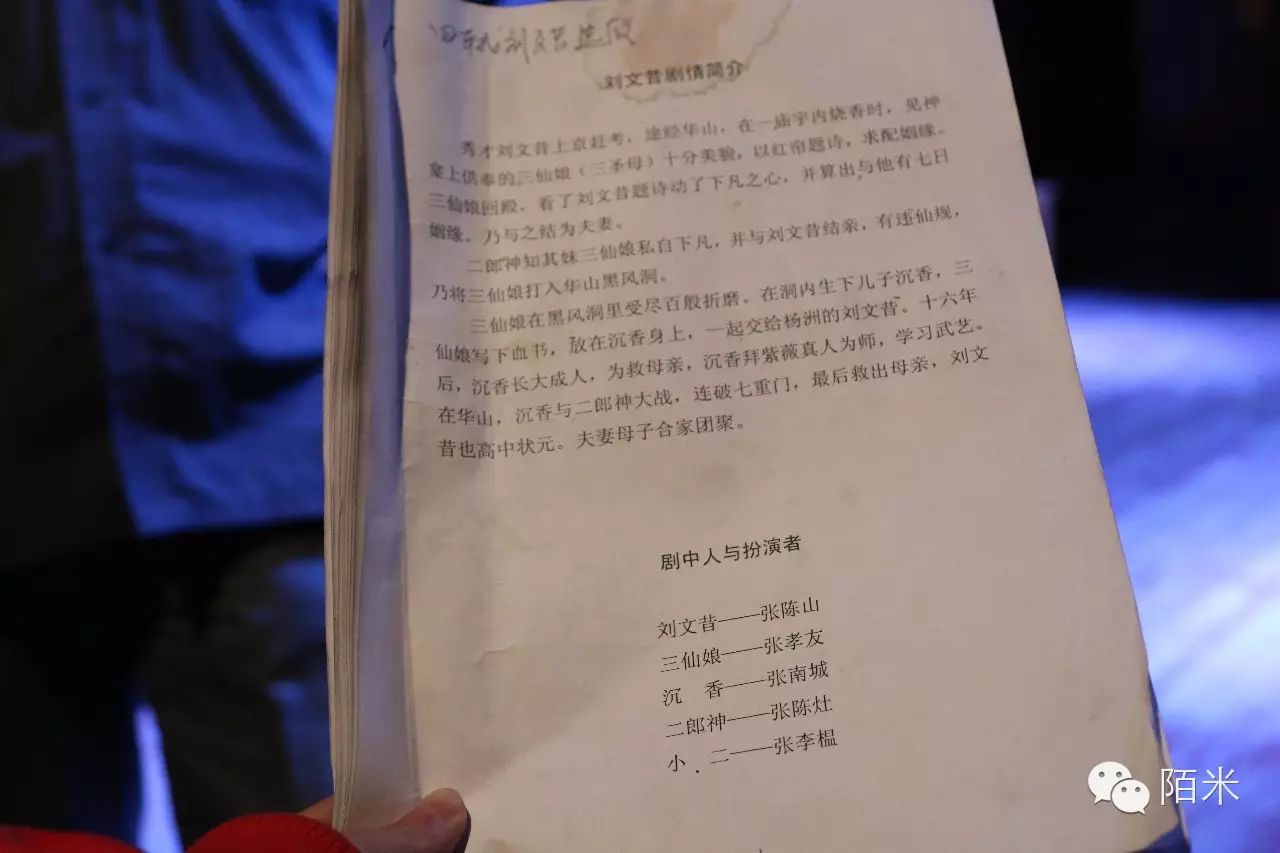 刘文昔剧情简介
秀才刘文昔上京赶考，途经华山，在一庙宇内烧香时，见神
龛上供奉的三仙娘（三圣母）十分美貌，以红帘题诗，求配姻缘。
三仙娘回殿，看了刘文昔题诗动了下凡之心，并算出与他有七日
姻缘。乃与之结为夫妻。
二郎神知其妹三仙娘私自下凡，并与刘文昔结亲，有违仙规，
乃将三仙娘打入华山黑风洞。
三仙娘在黑风洞里受尽百般折磨。在洞内生下儿子沉香，三
仙娘写下血书，放在沉香身上，一起交给杨洲的刘文昔。十六年
后，沉香长大成人，为救母亲，沉香拜紫薇真人为师，学习武艺。
在华山，沉香与二郎神大战，连破七重门，最后救出母亲，刘文
昔也高中状元。夫妻母子合家团聚。
剧中人与扮演者
刘文昔——张陈山
三仙娘——张孝友
沉　香——张南城
二郎神——张陈灶
小　二——张李榅
陌米